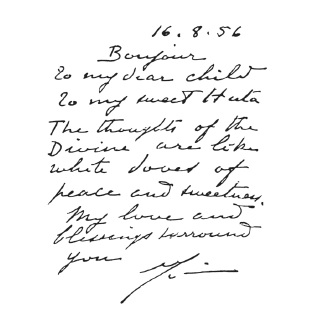 16.8.56
Bonjour
to my dear child
to my sweet Huta
The thoughts of the
Divine are like
white doves of
peace and sweetness.
My love and
blessings surround
you